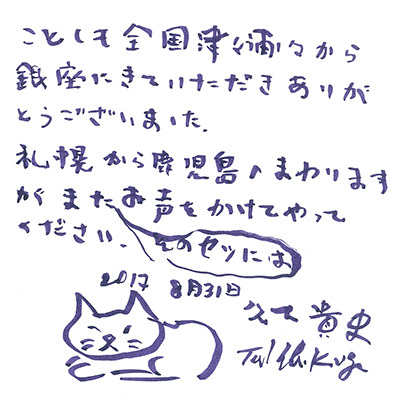 ことしも全国津々浦々から
銀座にきていただきありが
とうございました。
札幌から鹿児島へまわります
がまたお声をかけてやって
ください。そのセツには
2017 8月31日
久下貴史